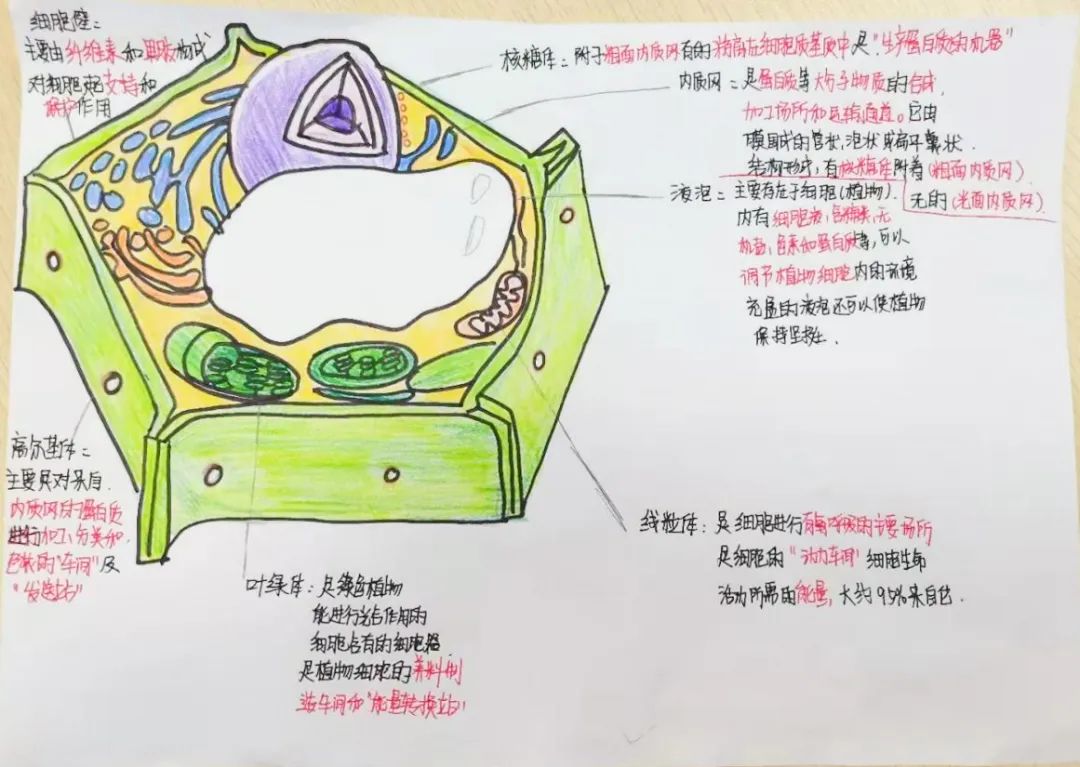 细胞壁：
主要由纤维素和果胶构成
对细胞起支持和
保护作用
核糖体：附于粗面内质网有的游离在细胞质基质中是“生产蛋白质的机器”
内质网：是蛋白质等大分子物质的合成，
加工场所和运输通道。它由
膜围成的管状，泡状或扁平囊状
结构形成，有核糖体附着（粗面内质网）
无的（光面内质网）
液泡：主要存在于细胞（植物）．
内有细胞液，含糖类，无
机盐，色素和蛋白质等，可以
调节植物细胞内的环境
充盈的液泡还可以使植物
保持坚挺．
高尔基体：
主要是对来自
内质网的蛋白质
进行加工，分类和
包装的“车间”及
“发送站”
线粒体：是细胞进行有氧呼吸的主要场所
是细胞的“动力车间”细胞生命
活动所需的能量，大约95%来自它．
叶绿体：是绿色植物
能进行光合作用的
细胞含有的细胞器
是植物细胞的“养料制
造车间和“能量转换站”